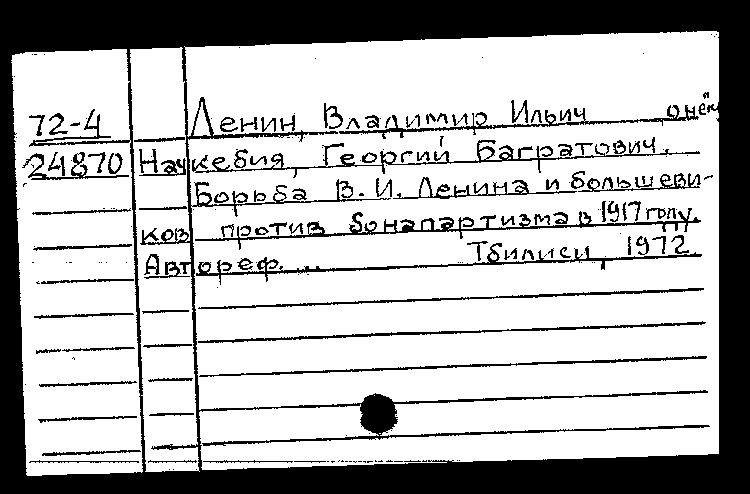 72-4 Ленин, Владимир Ильич о нём
24870 Начкебия, Георгий Багратович.
Борьба В. И. Ленина и большеви-
ков против бонапартизма в 1917 году.
Автореф. ... Тбилиси, 1972.